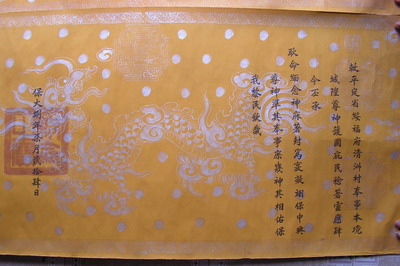 敕平定省綏福府清洲村奉事本境
城隍尊神護國庇民稔著靈應肆
今丕承
耿命緬念神庥著封爲凝翊保中興
尊神準其奉事庶幾神其相佑保
我黎民欽哉
保大年柒月貳拾肆日